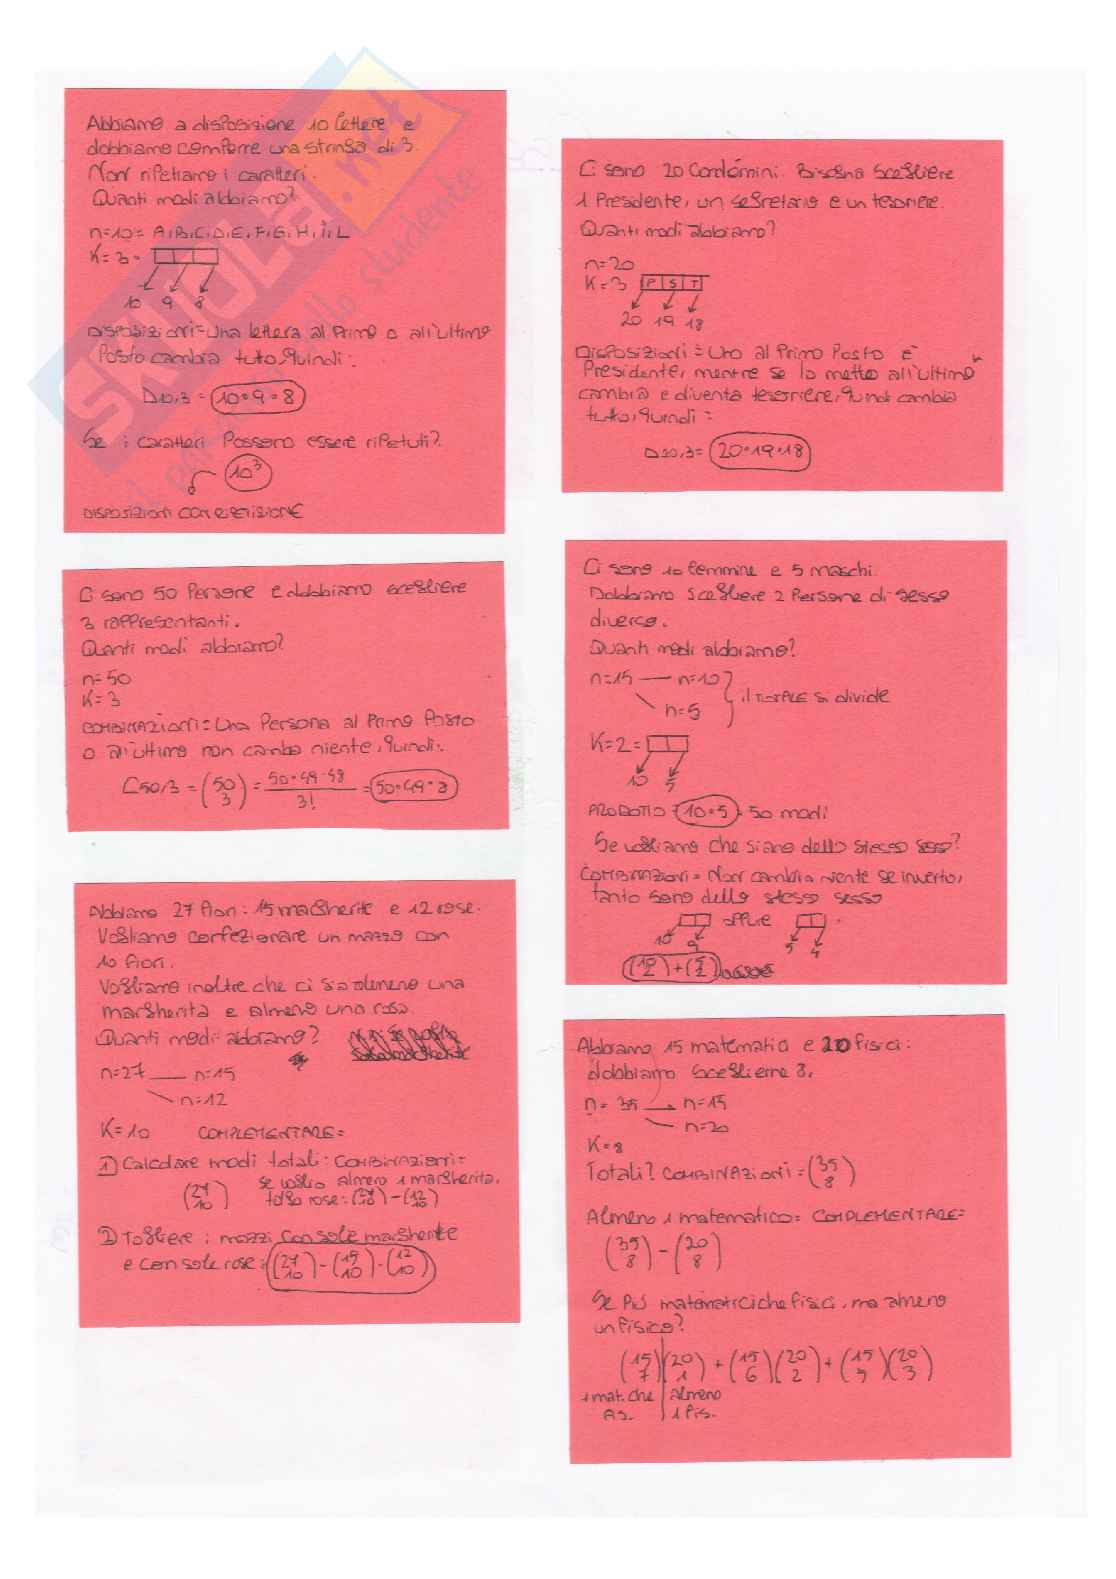 Abbiamo a disposizione 10 lettere e
dobbiamo comporre una stringa di 3.
Non ripetiamo i caratteri.
Quanti modi abbiamo?
n=10= A,B,C,D,E,F,G,H,I,L
K= 3 =
10 9 8
DISPOSIZIONI = Una lettera al Primo o all'ultimo
Posto cambia tutto, quindi:
D10,3 = 10•9•8
Se i caratteri Possono essere ripetuti?
10³
DISPOSIZIONI CON RIPETIZIONE
Ci sono 20 Condòmini. Bisogna scegliere
1 Presidente, un segretario e un tesoriere.
Quanti modi abbiamo?
n=20
K= 3 P S T
20 19 18
DISPOSIZIONI = Uno al Primo Posto è
Presidente, mentre se lo metto all'ultimo
cambia e diventa tesoriere, quindi cambia
tutto, quindi =
D20,3= 20•19•18
Ci sono 50 Persone e dobbiamo scegliere
3 rappresentanti.
Quanti modi abbiamo?
n=50
K=3
COMBINAZIONI = Una Persona al Primo Posto
o all'ultimo non cambia niente, quindi:
C50,3 = (50 3) = 50•49•48 / 3! = 50•49•8
Ci sono 10 femmine e 5 maschi.
Dobbiamo scegliere 2 Persone di sesso
diverso.
Quanti modi abbiamo?
n=15 — n=10
n=5
il TOTALE si divide
K=2 =
10 5
PRODOTTO = 10•5 = 50 modi
Se vogliamo che siano dello stesso sesso?
COMBINAZIONI = Non cambia niente se inverto,
tanto sono dello stesso sesso
oppure
10 9 5 4
(10 2) + (5 2)
Abbiamo 27 fiori: 15 margherite e 12 rose.
Vogliamo confezionare un mazzo con
10 fiori.
Vogliamo inoltre che ci sia almeno una
margherita e almeno una rosa.
Quanti modi abbiamo?
n=27 — n=15
n=12
K=10 COMPLEMENTARE=
1) Calcolare modi totali: COMBINAZIONI=
(27 10) se voglio almeno 1 margherita,
tolgo rose: (27 10) - (12 10)
2) Togliere i mazzi con sole margherite
e con sole rose: (27 10) - (15 10) - (12 10)
Abbiamo 15 matematici e 20 fisici:
dobbiamo sceglierne 8.
n= 35 → n=15
n=20
K=8
Totali? COMBINAZIONI = (35 8)
Almeno 1 matematico= COMPLEMENTARE=
(35 8) - (20 8)
Se Più matematici che fisici, ma almeno
un fisico?
(15 7)(20 1) + (15 6)(20 2) + (15 5)(20 3)
almeno
1 fis.
SKUOLA.net